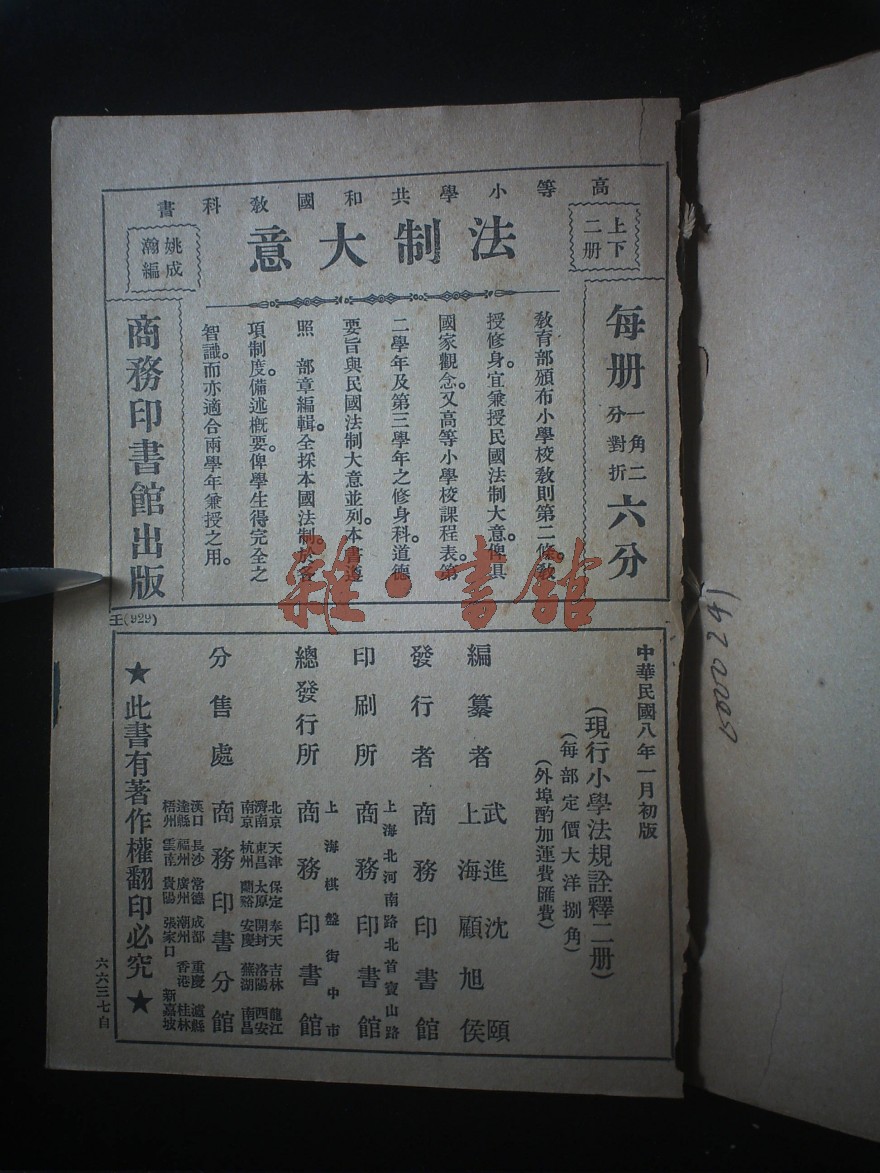 高等小學共和國教科書
上下二册
法制大意
姚成瀚編
每册一角二分對折六分
教育部頒布小學校教則第二條。教
授修身。宜兼授民國法制大意。俾具
國家觀念。又高等小學校課程表第
二學年及第三學年之修身科。道德
要旨與民國法制大意並列。本書遵
照　部章編輯。全採本國法制。於各
項制度。備述概要。俾學生得完全之
智識。而亦適合兩學年兼授之用。
商務印書館出版
王(929)
雜·書館
中華民國八年一月初版
(現行小學法規詮釋二册)
(每部定價大洋捌角)
(外埠酌加運費匯費)
編纂者 武進沈頤
上海顧旭侯
發行者 商務印書館
印刷所 上海北河南路北首寶山路
商務印書館
總發行所 上海棋盤街中市
商務印書館
分售處 北京 天津 保定 奉天 吉林 龍江
濟南 東昌 太原 開封 洛陽 西安
南京 杭州 蘭谿 安慶 蕪湖 南昌
商務印書分館
漢口 長沙 常德 成都 重慶 瀘縣
達縣 福州 廣州 潮州 香港 桂林
梧州 雲南 貴陽 張家口 新嘉坡
★此書有著作權翻印必究★
六六三七自
15000241